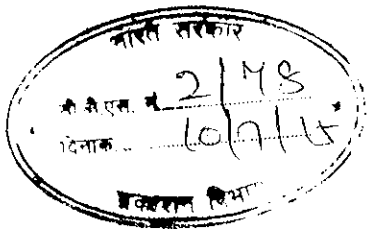 भारत सरकार
सी.एस. 2/MS
दिनांक... 10/7/15
प्रकाशन विभाग